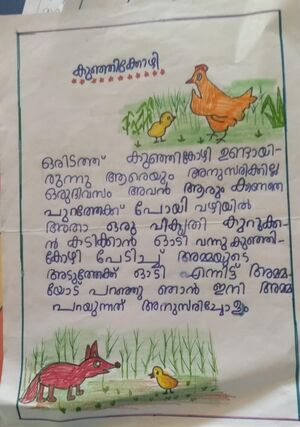 കുഞ്ഞിക്കോഴി
ഒരിടത്ത് കുഞ്ഞികോഴി ഉണ്ടായി-
രുന്നു ആരെയും അനുസരിക്കില്ല
ഒരുദിവസം അവൻ ആരും കാണാതെ
പുറത്തേക്ക് പോയി വഴിയിൽ
അതാ ഒരു വികൃതി കുറുക്ക-
ൻ കടിക്കാൻ ഓടി വന്നു കുഞ്ഞി-
കോഴി പേടിച്ച് അമ്മയുടെ
അടുത്തേക്ക് ഓടി എന്നിട്ട് അമ്മ-
യോട് പറഞ്ഞു ഞാൻ ഇനി അമ്മ
പറയുന്നത് അനുസരിച്ചോളും